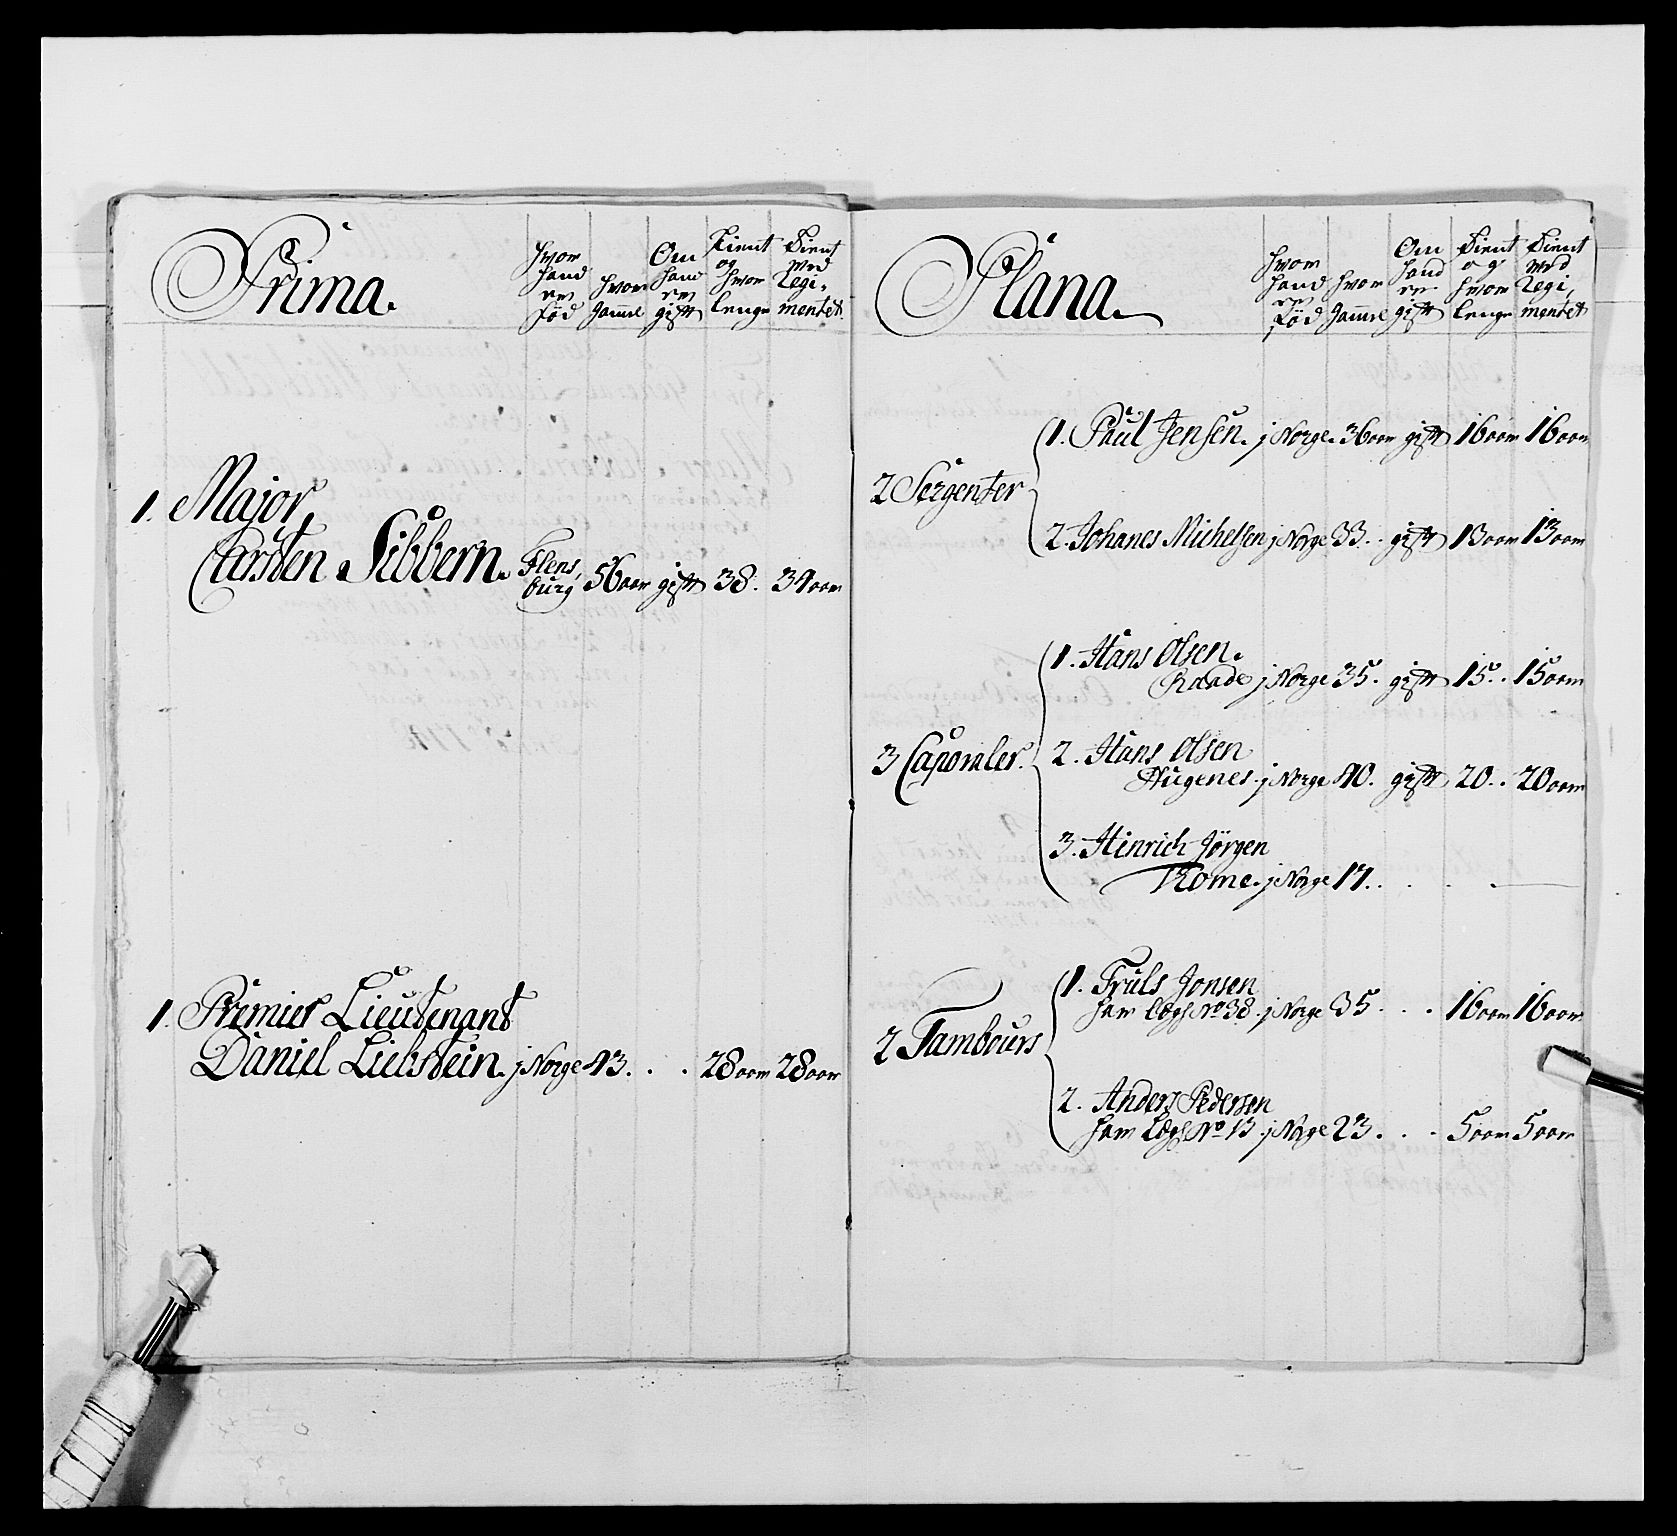 Prima.
Hvor hand er fød
Hvor Gammel
Om hand er gift
Tient og hvor lenge
Tient med Regi, mentet
1. Major
Carsten Sibbern. Flens, burg 56 aar gift 38. 34 aar
1. Premier Lieutenant
Daniel Liebstein. j Norge 43. . . 28 aar 28 aar
Plana.
Hvor hand er fød
Hvor Gammel
Om hand er gift
Tient og hvor lenge
Tient med Regi, mentet
2 Sergenter
1. Paul Jensen. j Norge. 36 aar gift 16 aar 16 aar
2. Johanes Michelsen j Norge 33. . gift 13 aar 13 aar
3 Caporaler.
1. Hans Olsen.
Raade j Norge 35. gift 15. . 15 aar
2. Hans Olsen
Hugenes. j Norge 40. gift 20. . 20 aar
3. Hinrich Jörgen
Kome. j Norge 17. . . . . —
2 Tambours
1. Truls Jonsen
ham Lægs No 38. j Norge 35 . . . 16 aar 16 aar
2. Anders Pedersen
ham Lægs No 13. j Norge 23. . . 5 aar 5 aar